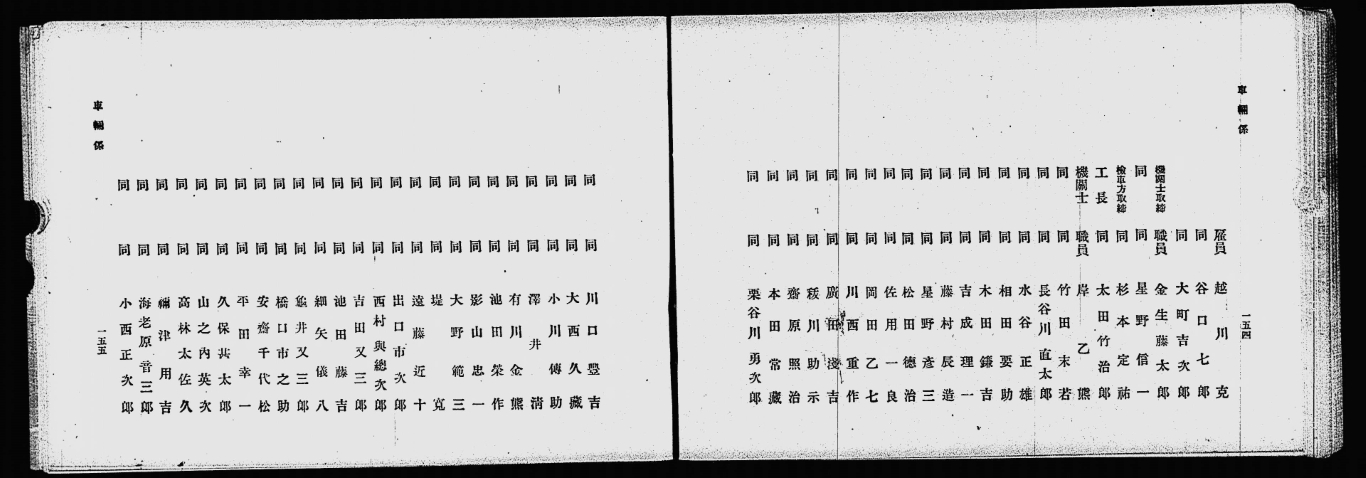 車輛係
一五四
雇員 越川克
同 谷口七郎
同 大町吉次郎
機關士取締 職員 金生藤太郎
同 同 星野信一
檢車方取締 同 杉本定祐
工長 同 太田竹治郎
機關士 職員 岸乙熊
同 同 竹田末若
同 同 長谷川直太郎
同 同 水谷正雄
同 同 相田要助
同 同 木田鎌吉
同 同 吉成理一
同 同 藤村辰造
同 同 星野彥三
同 同 松田德治
同 同 佐用一良
同 同 岡田乙七
同 同 川西重作
同 同 廣田淺吉
同 同 川助示
同 同 齋原照治
同 同 本田常藏
同 同 栗谷川勇次郎
車輛係
同 同 川口豐吉
同 同 大西久藏
同 同 小川傳助
同 同 澤井淸
同 同 有川金熊
同 同 池田榮作
同 同 影山忠一
同 同 大野範三
同 同 堤寬
同 同 遠藤近十
同 同 出口市次郎
同 同 西村與總次郎
同 同 吉田又三郎
同 同 池田藤吉
同 同 細矢儀八
同 同 龜井又三郎
同 同 橋口市之助
同 同 安齋千代松
同 同 平田幸一
同 同 久保甚太郎
同 同 山之內英次
同 同 高林太佐久
同 同 禰津用吉
同 同 海老原音三郎
同 同 小西正次郎
一五五